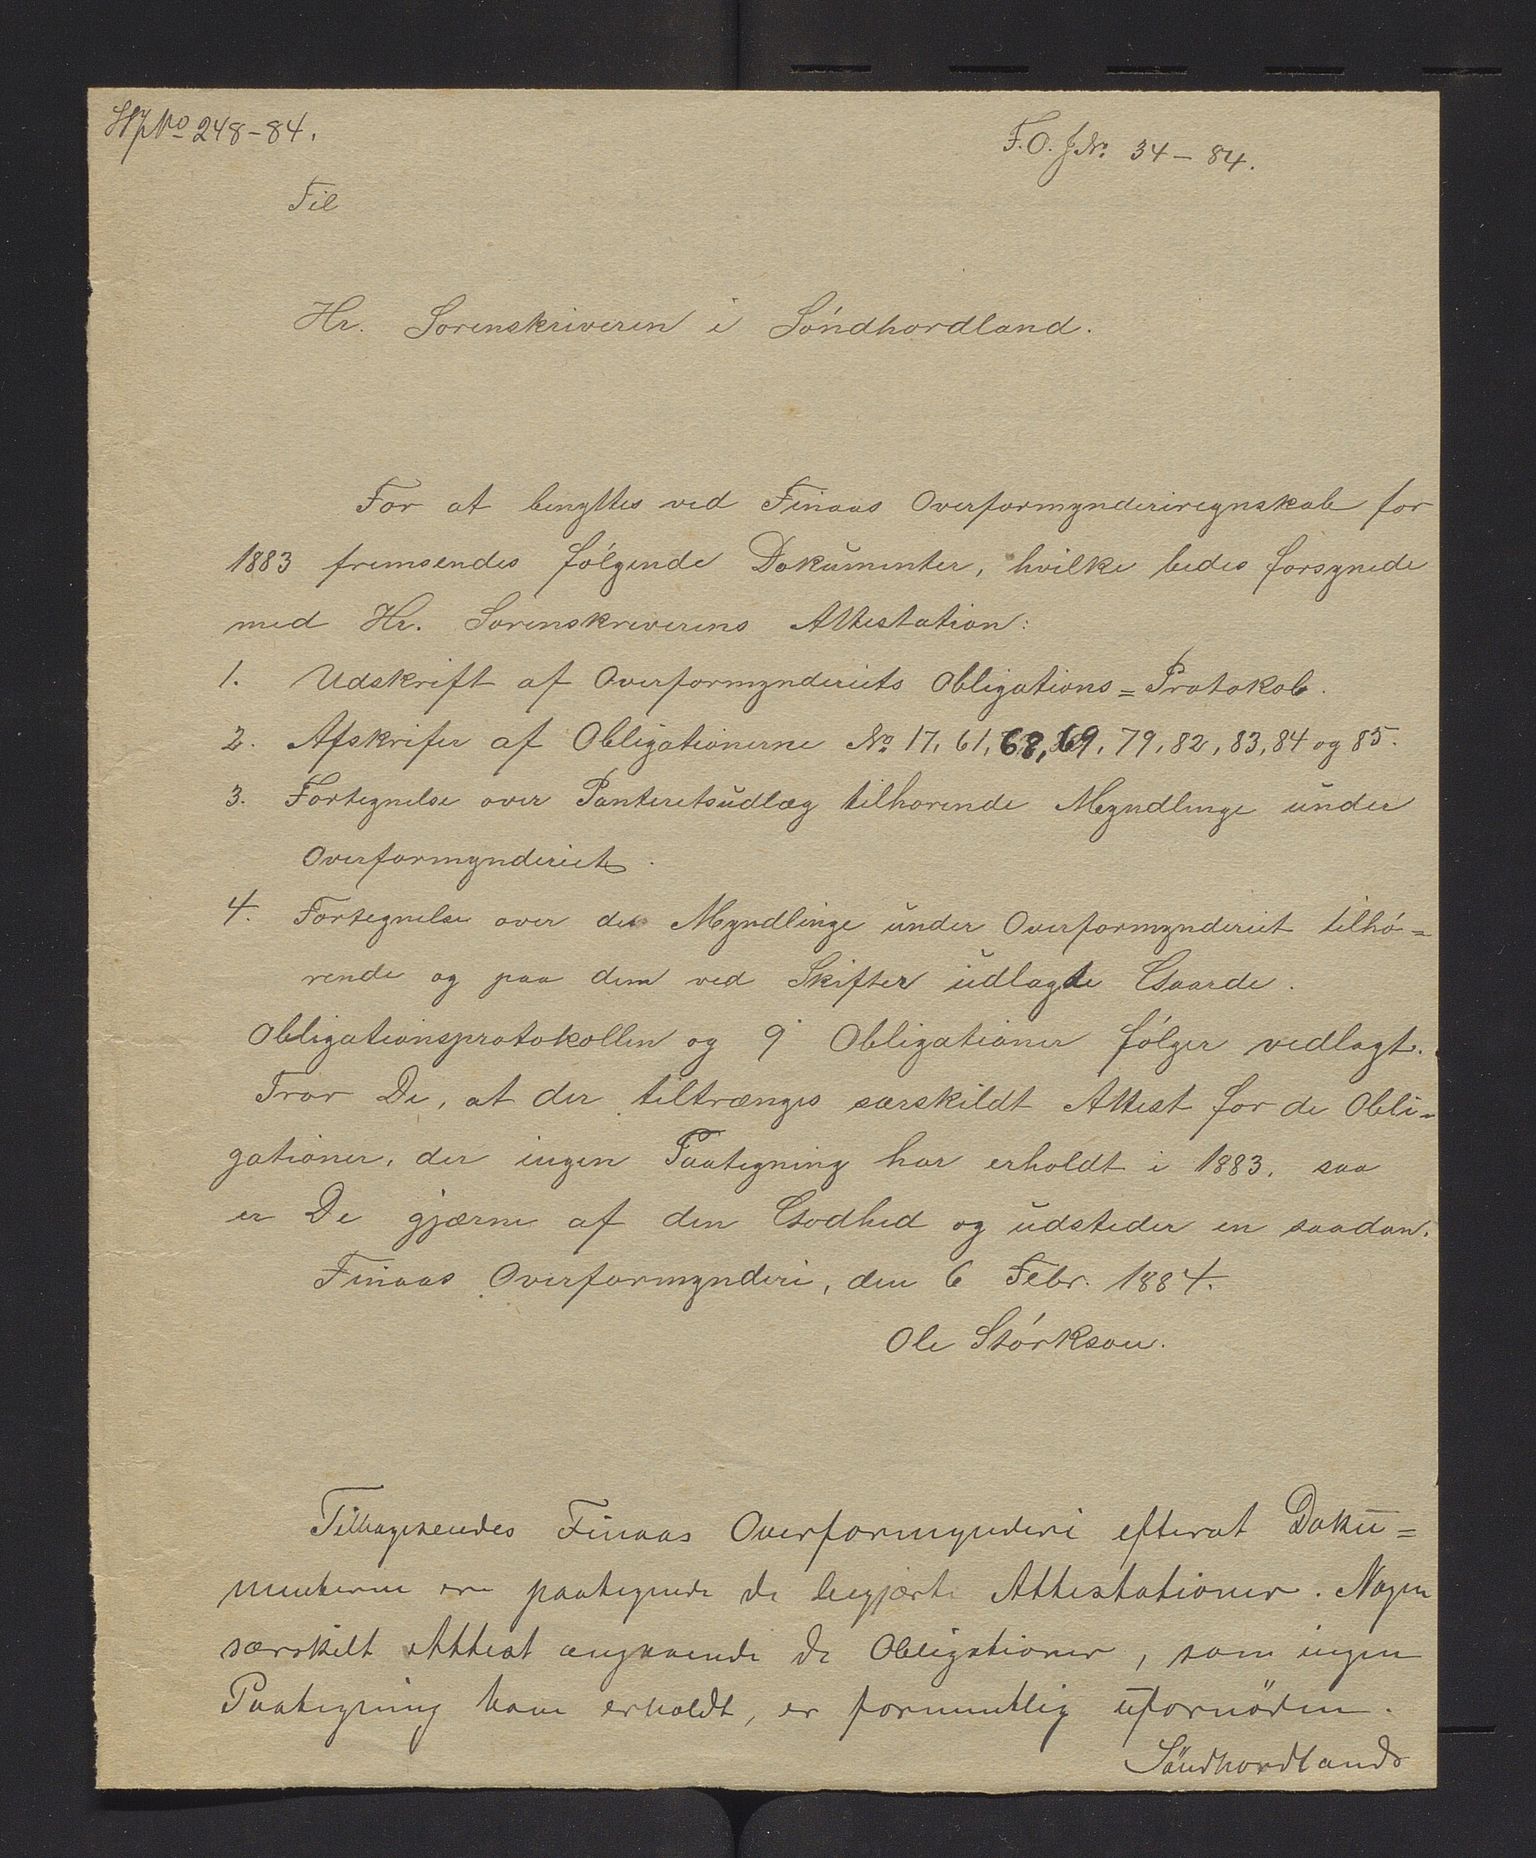 No 248-84.
F.O. J.No. 34-84.
Til
Hr. Sorenskriveren i Søndhordland.
For at benyttes ved Finaas Overformynderiregnskab for
1883 fremsendes følgende Dokumenter, hvilke bedes forsynede
med Hr. Sorenskriverens Attestation:
1. Udskrift af Overformynderiets Obligations=Protokol.
2. Afskrifer af Obligationerne No 17, 61, 68, 69, 79, 82, 83, 84 og 85.
3. Fortegnelse over Panteretsudlæg tilhorende Myndlinge under
Overformynderiet.
4. Fortegnelse over de Myndlinge under Overformynderiet tilhø=
rende og paa dem ved Skifter udlagte Gaarde.
Obligationsprotokollen og 9 Obligationer følger vedlagt.
Tror De, at der tiltrænges særskildt Attest for de Obli=
gationer, der ingen Paategning har erholdt i 1883, saa
er De gjærne af den Godhed og udsteder en saadan.
Finaas Overformynderi, den 6 Febr. 1884.
Ole Størkson.
Tilbagesendes Finaas Overformynderi efterat Doku=
menterne ere paategnede de begjærte Attestationer. Nogen
særskilt Attest angaaende de Obligationer, som ingen
Paategning have erholdt, er formentlig ufornöden.
Söndhordlands